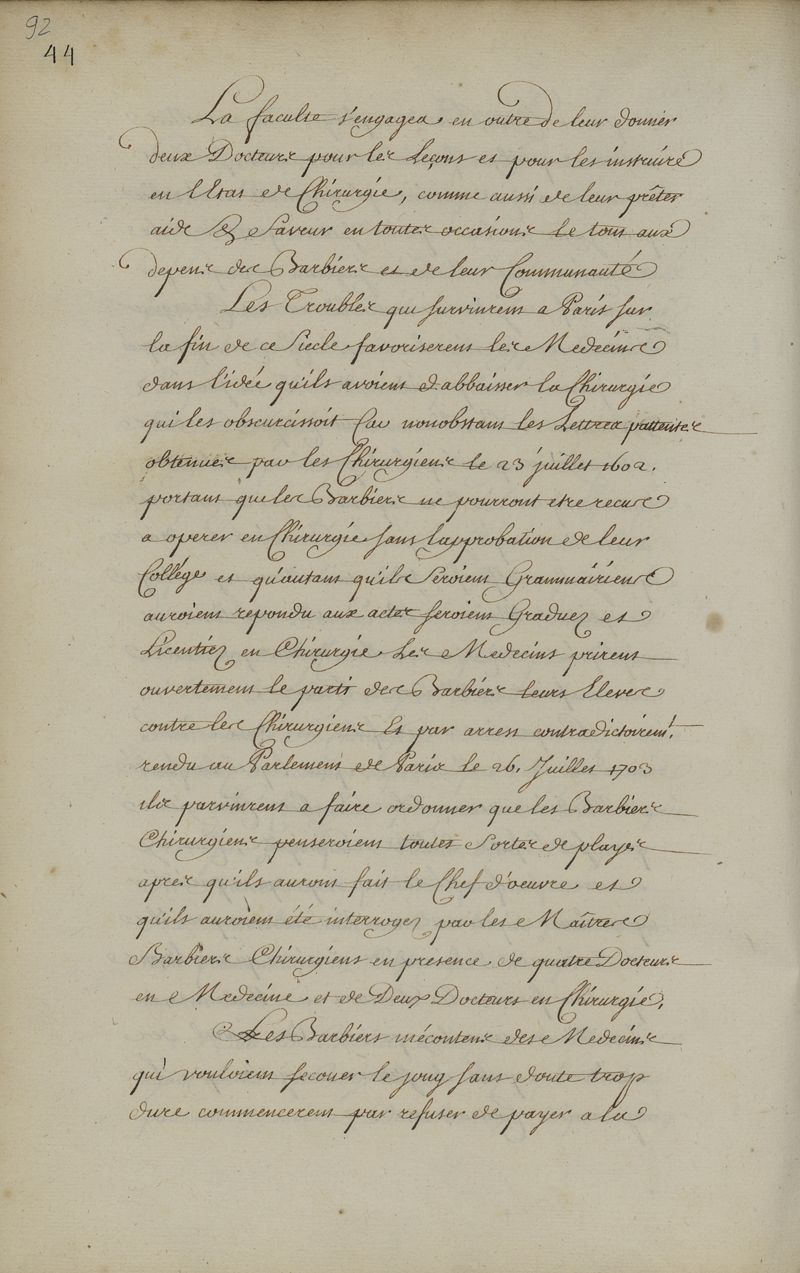 92
44
La faculte s'engagea en outre de leur donner
deux Docteurs pour les Leçons et pour les instruire
en l'Etat de Chirurgie, comme aussi de leur prêter
aide & Faveur en toutes occasions le tout aux
depens des Barbiers et de leur Communauté
Les Troubles qui survinrent a Paris sur
la fin de ce Siecle favoriserent les Medecins
dans l'idée qu'ils avoient d'abbaisser la Chirurgie
qui les obscurcissoit Car nonobstant les Lettres pattentes
obtenues par les Chirurgiens le 23 juillet 1602.
portant que les Barbiers ne pourront etre recus
a operer en Chirurgie sans l'approbation de leur
Collége et qu'autant qu'ils Seroient Grammairiens
auroient repondu aux actes seroient Graduez et
Licentiez en Chirurgie Les Medecins prirent
ouvertement le parti des Barbiers leurs Eleves
contre les Chirurgiens Et par arrest contradictoirem.t
rendu au Parlement de Paris le 26. Juillet 1703
ils parvinrent a faire ordonner que les Barbiers
Chirurgiens penseroient toutes Sortes de playes
apres qu'ils auront fait le Chef d'oeuvre et
qu'ils auroient été interrogez par les Maîtres
Barbiers Chirurgiens en presence de quatre Docteurs
en Medecine et de Deux Docteurs en Chirurgie,
Les Barbiers mécontens des Medecins
qui vouloient secouer le joug sans doute trop
dure commencerent par refuser de payer a la